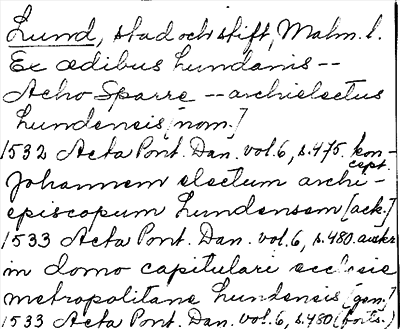 Lund, stad och stift, Malm. l.
Ex ædibus Lundanis --
Acho Sparre -- archielectus
Lundensis [nom.]
1532 Acta Pont. Dan. vol. 6, s. 475. kon-
cept.
Johannem electum archi-
episcopum Lundensem [ack.]
1533 Acta Pont. Dan. vol. 6, s. 480.
in domo capitulari ecclesie
metropolitane Lundensis [gen.]
1533 Acta Pont. Dan. vol. 6, s. 480 (forts.)